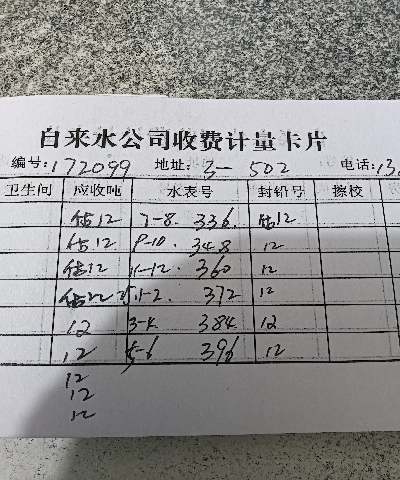 自来水公司收费计量卡片
编号:172099 地址:3-502 电话:13
卫生间 应收吨 水表号 封铅号 擦校
估12 7-8. 336. 估12
估12 9-10. 348 12
估12 11-12. 360 12
估12 1-2. 372 12
12 3-4 384 12
12 5-6 396 12
12
12
12